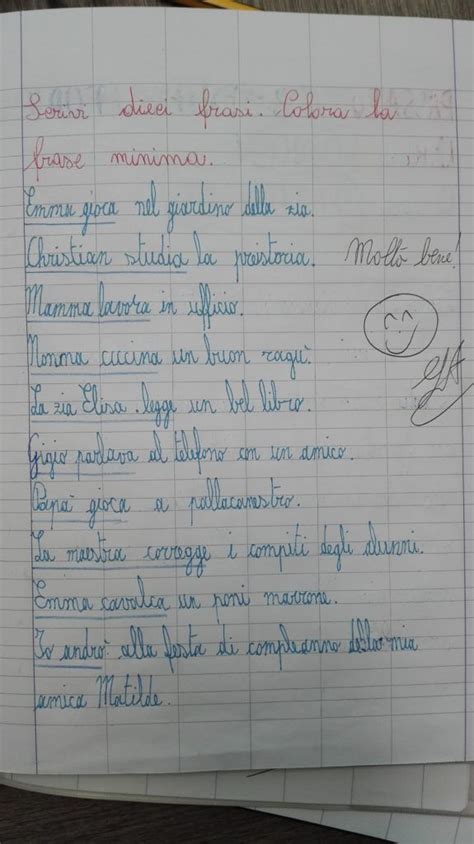 Scrivi dieci frasi. Colora la
frase minima.
Emma gioca nel giardino della zia.
Christian studia la preistoria. Molto bene!
Mamma lavora in ufficio.
Nonna cucina un buon ragù.
La zia Elisa legge un bel libro.
Gigio parlava al telefono con un amico.
Papà gioca a pallacanestro.
La maestra corregge i compiti degli alunni.
Emma cavalca un poni marrone.
Io andrò alla festa di compleanno della mia
amica Matilde.